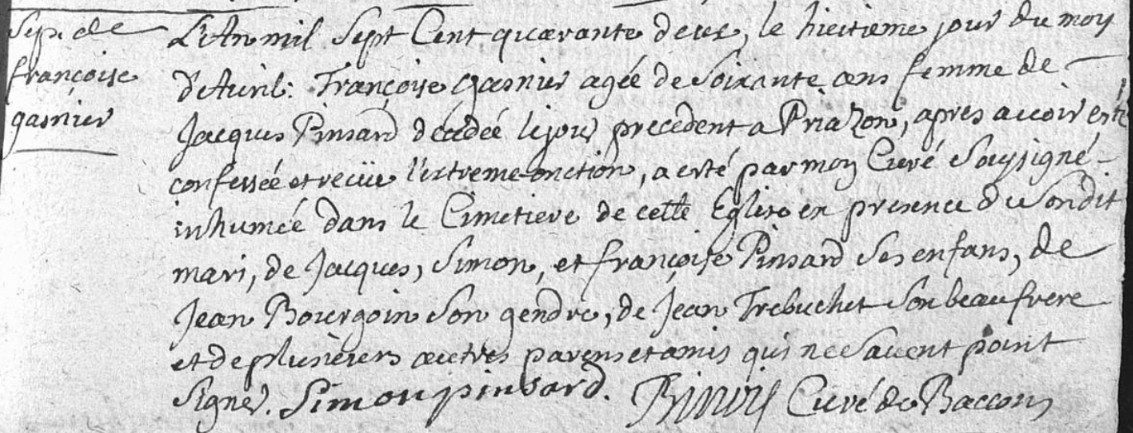 Sep. de
françoise
gasnier
L'An mil Sept Cent quarante deux, le huitième jour du moy
d'Auril: Françoise gasnier agée de Soixante ans femme de
Jacques Pinsard decedée le jour precedent a Priazon, apres auoir esté
confessée et reçüe l'extreme-onction, a esté par moy Curé Soussigné
inhumée dans le Cimetiere de cette Eglise en presence de Son dit
mari, de Jacques, Simon, et françoise Pinsard Ses enfans, de
Jean Bourgoin Son gendre, de Jean Trebuchet Son beaufrere
et de plusieurs autres parens et amis qui ne Sauent point
Signer. Simon pinsard. Curé de Baccon